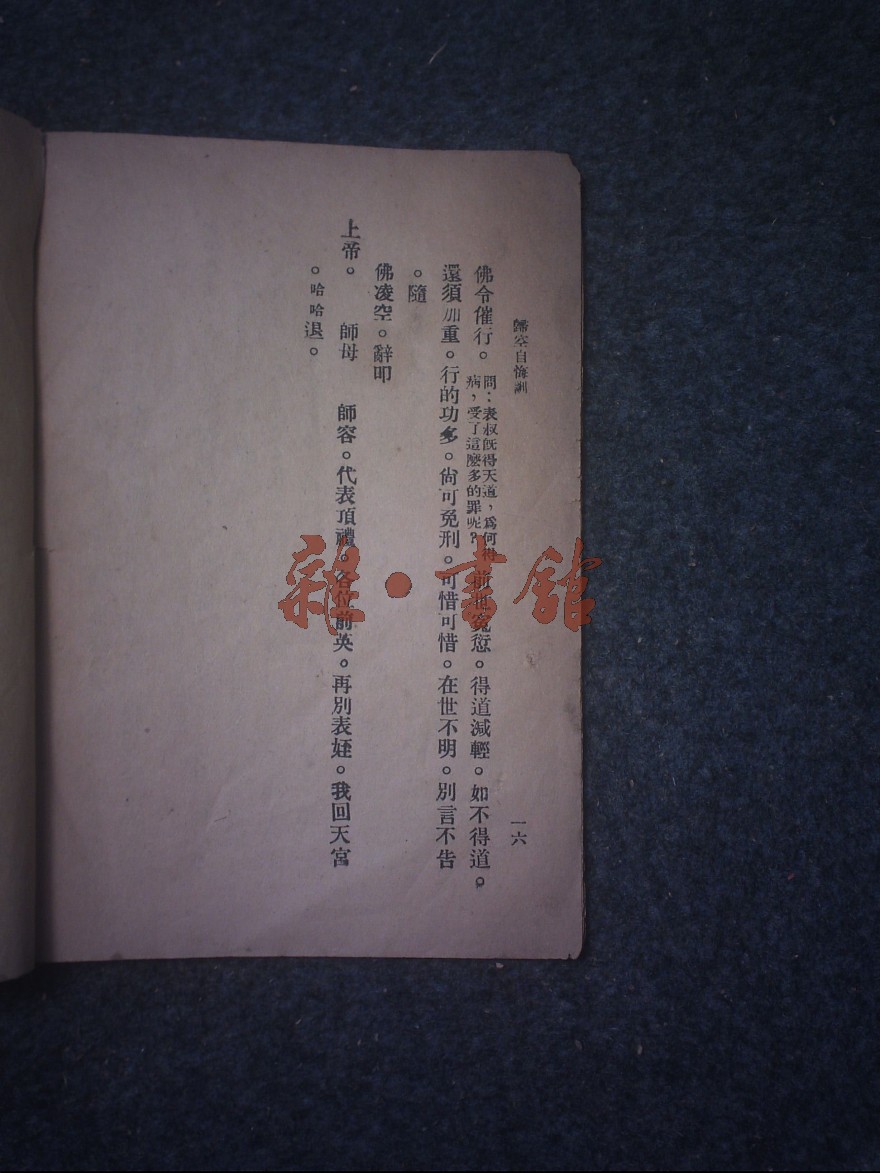 歸空自悔訓
一六
佛令催行。問：表叔旣得天道，爲何得病，受了這麽多的罪呢？前世冤愆。得道減輕。如不得道。
還須加重。行的功多。尙可免刑。可惜可惜。在世不明。別言不告
。隨
佛凌空。辭叩
上帝。 師母 師容。代表頂禮。各位前英。再別表姪。我回天宮
。哈哈退。
雜·書館